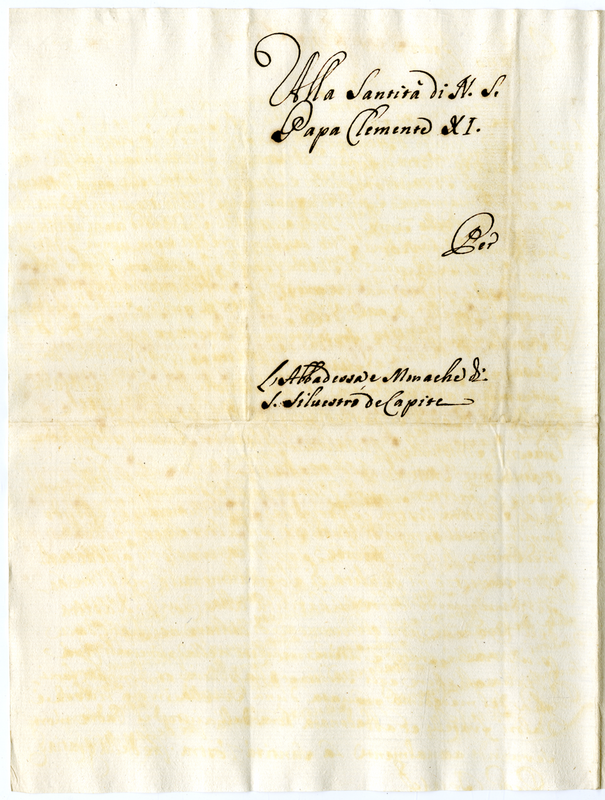 Alla Santità di N. S.
Papa Clemente XI.
Per
L'Abbadessa e Monache di
S. Siluestro de Capite